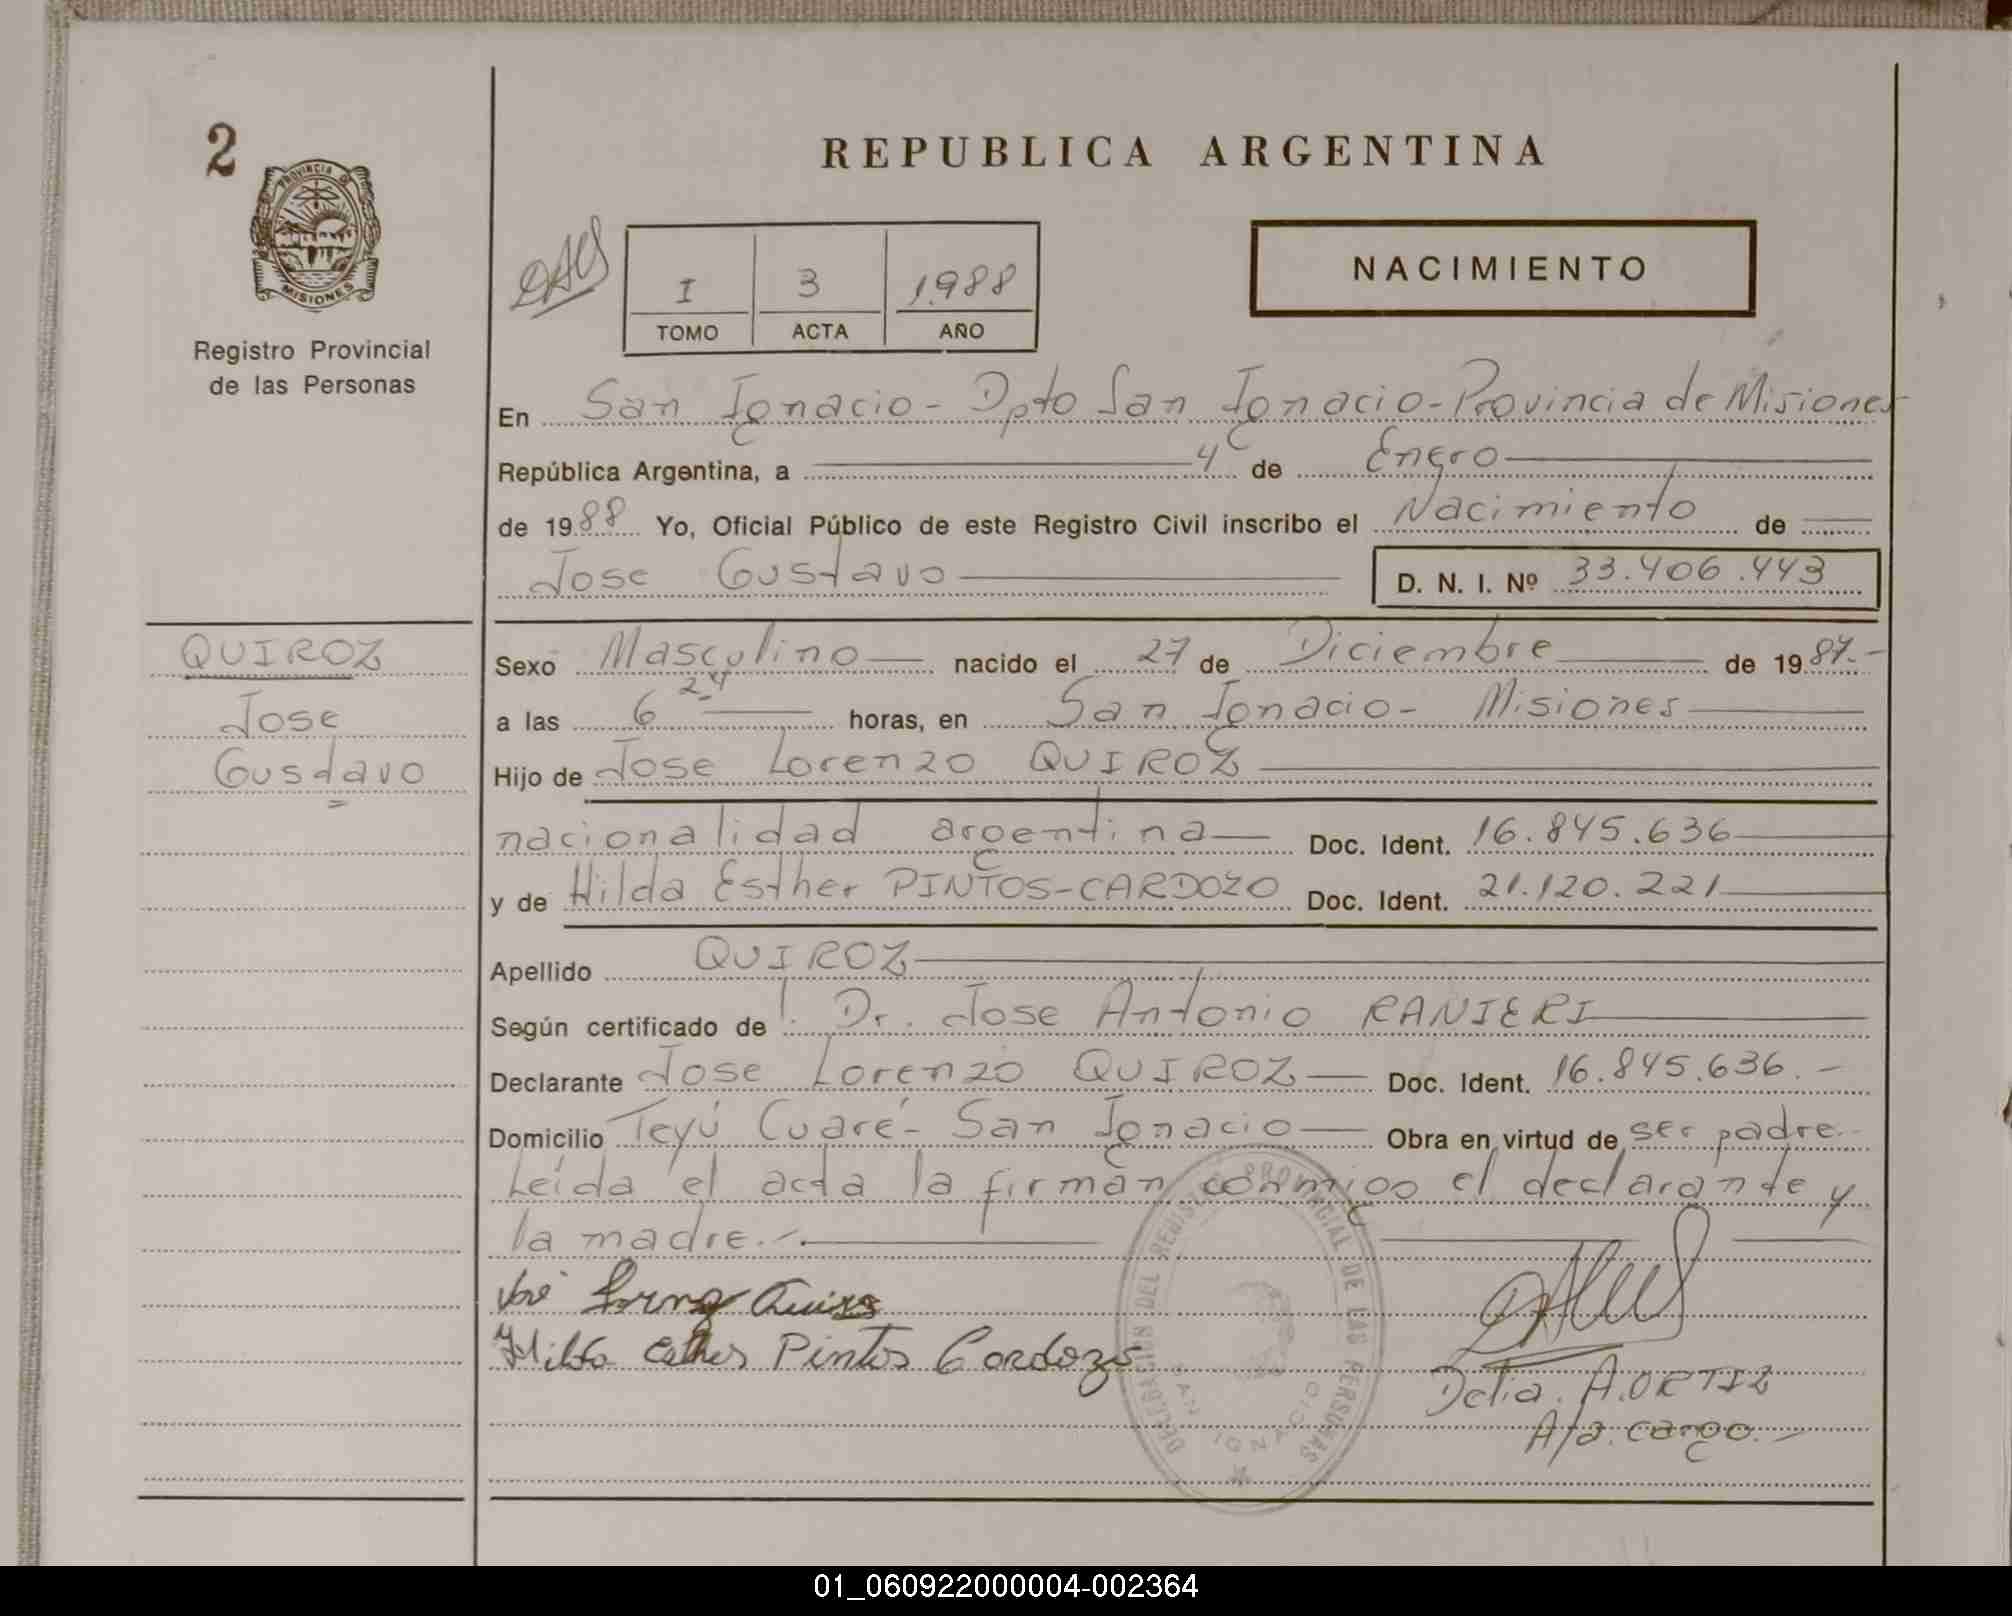 2
PROVINCIA DE
MISIONES
Registro Provincial
de las Personas
REPUBLICA ARGENTINA
I 3 1988
TOMO ACTA AÑO
NACIMIENTO
En San Ignacio - Dpto San Ignacio - Provincia de Misiones
República Argentina, a 4 de Enero
de 1988 Yo, Oficial Público de este Registro Civil inscribo el Nacimiento de
Jose Gustavo D. N. I. Nº 33.406.443
QUIROZ
Jose
Gustavo
Sexo Masculino nacido el 27 de Diciembre de 1987.-
a las 6 24 horas, en San Ignacio - Misiones
Hijo de Jose Lorenzo QUIROZ
nacionalidad argentina Doc. Ident. 16.845.636
y de Hilda Esther PINTOS-CARDOZO Doc. Ident. 21.120.221
Apellido QUIROZ
Según certificado de Dr. Jose Antonio RANIERI
Declarante Jose Lorenzo QUIROZ Doc. Ident. 16.845.636.-
Domicilio Teyú Cuaré - San Ignacio Obra en virtud de ser padre.-
Leída el acta la firman conmigo el declarante y
la madre.-.
José Lorenzo Quiroz
Hilda Esther Pintos Cardozo
DELEGACION DEL REGISTRO PROVINCIAL DE LAS PERSONAS
SAN IGNACIO
Delia. A. ORTIZ
A/a. cargo.-
01_060922000004-002364